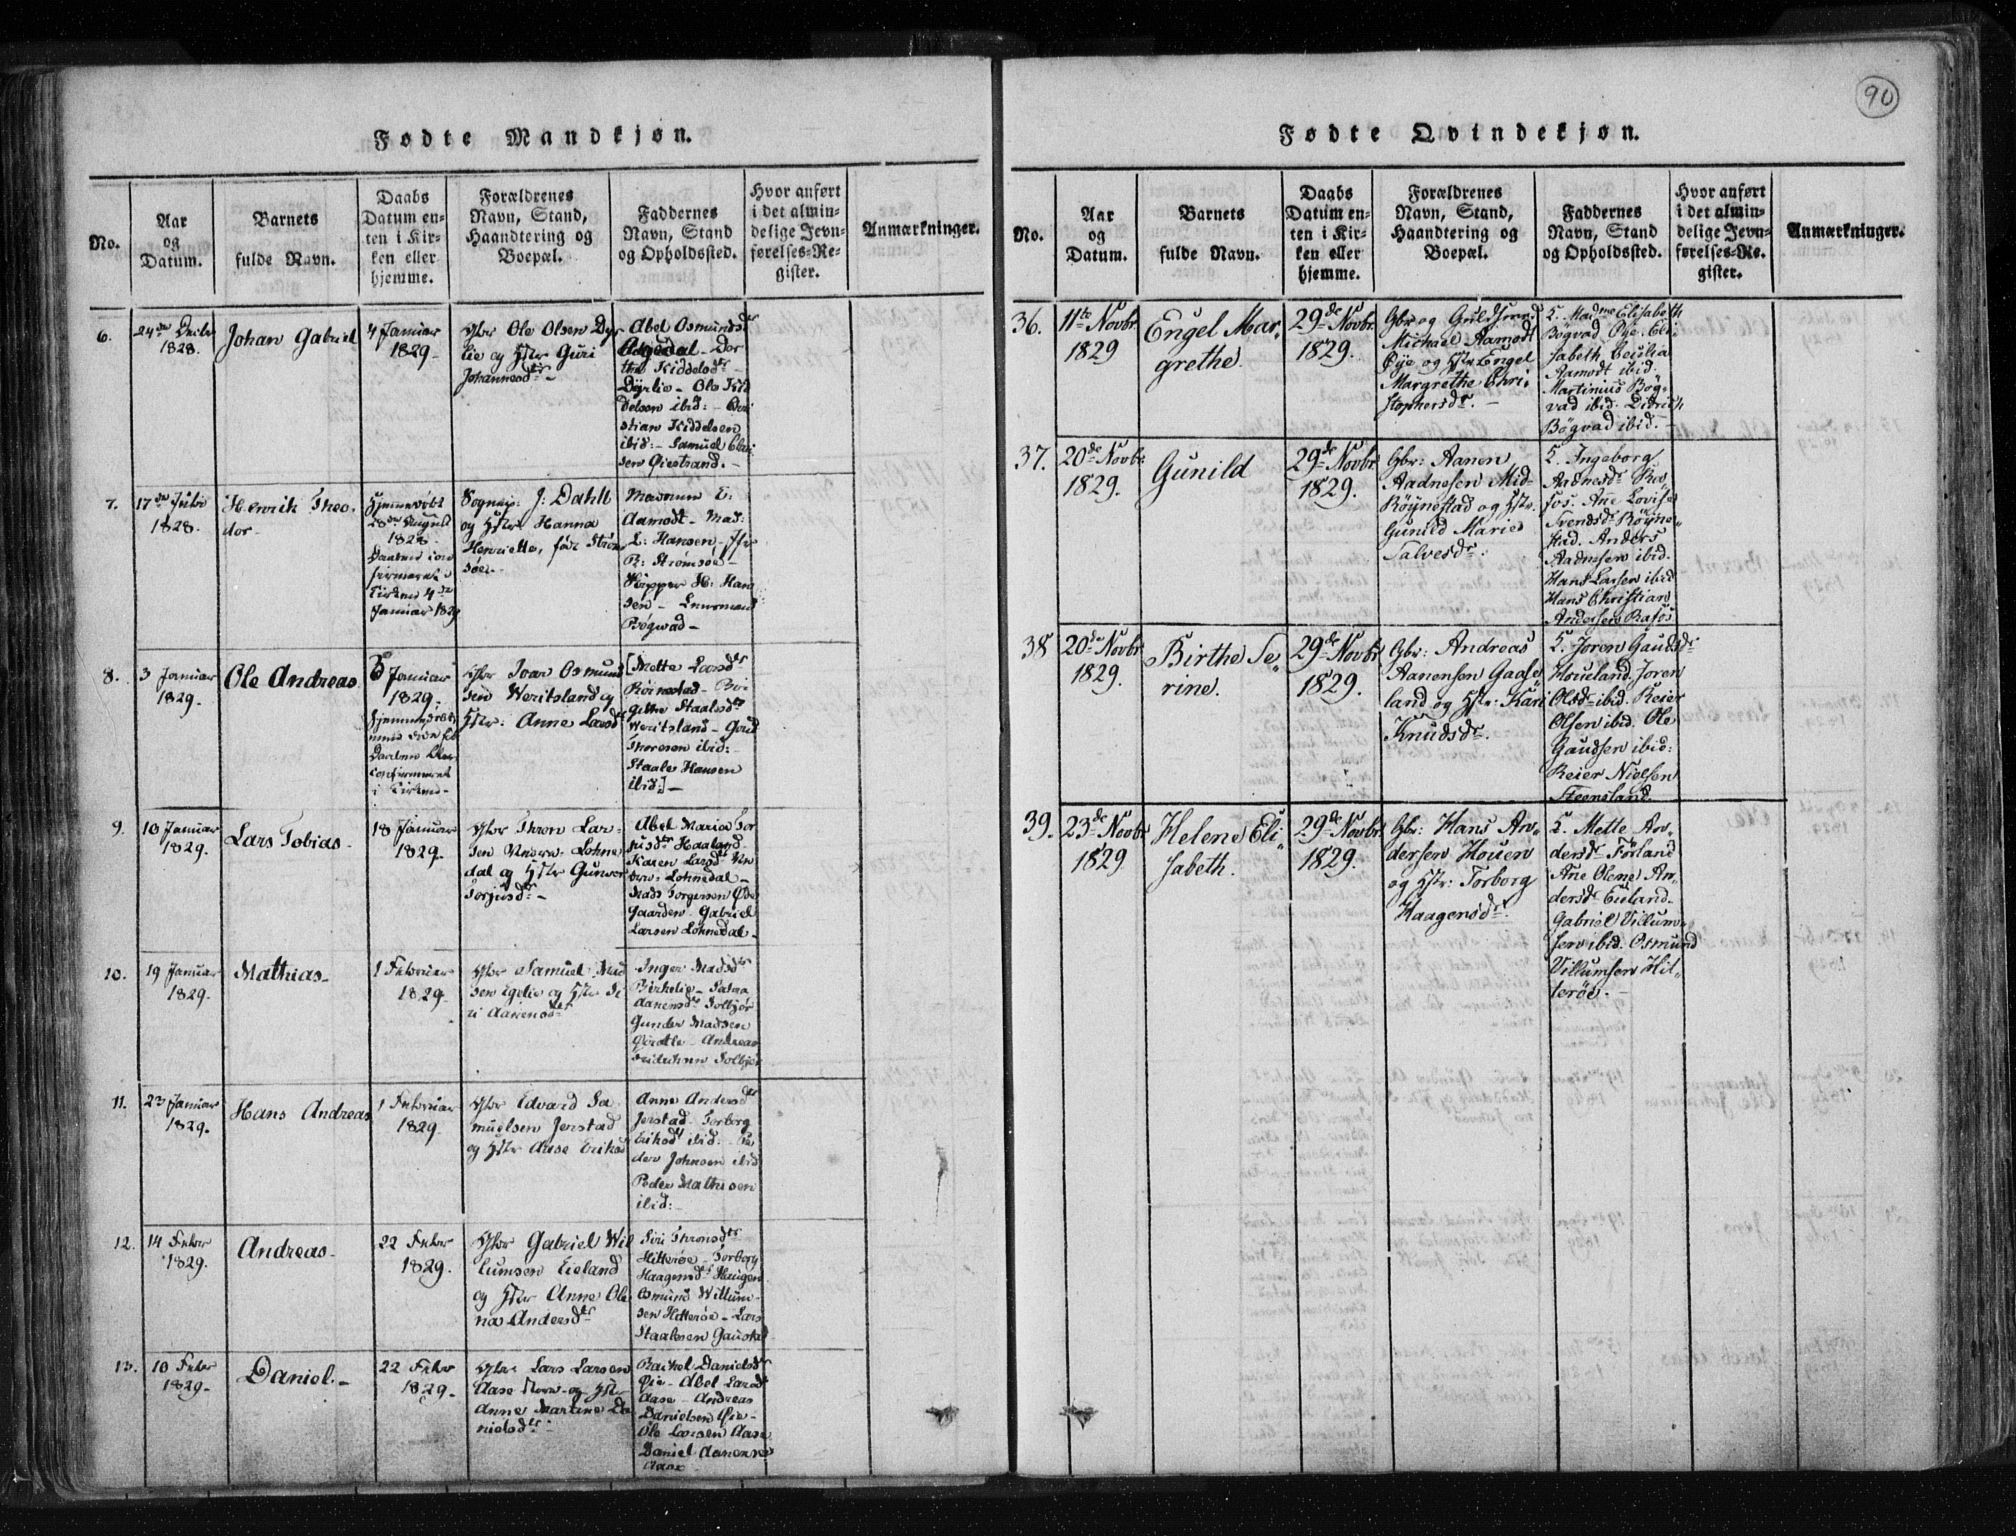 90
Fødte Mandkjøn.
No.
Aar
og
Datum.
Barnets
fulde Navn.
Daabs
Datum en-
ten i Kir-
ken eller
hjemme.
Forældrenes
Navn, Stand,
Haandtering og
Boepæl.
Faddernes
Navn, Stand
og Opholdssted.
Hvor anført
i det almin-
delige Jevn-
førelses-Re-
gister.
Anmærkninger.
6.
1828.
Johan Gabriel
4 Januar
1829.
Ole Olsen Dyr
lie og Hstr Guri
Johannesdtr
Abel Osmundsdtr
Dyrlie - Ole Kid
delsen ibid: -
stian Kiddelsen
ibid: - Samuel
sen Øiestrand. -
7.
17de
1828.
Henrik Theo-
dor.
1828
4de
Januar 1829
J: Dahll
og Hstr Hanna
Henriette, født Strøm
søe -
Aamodt - Mad:
L: Hansen -
P: Strømsøe -
Skipper H: Han
sen - Lensmand
Bøgwad -
8.
3 Januar
1829.
Ole Andreas
Januar
1829.
i Kirken -
Ivar Osmund
sen Weritsland og
Hstr: Anne Larsdtr
[Mette Larsdtr
Staalsdtr
Weritsland -
Thoresen ibid:
Staale Hansen
ibid:] -
9.
10 Januar
1829.
Lars Tobias -
18 Januar
1829.
Thron Lar-
sen Lohne
dal og Hstr Gunvor
Torjusdtr -
Abel Maria Tor
jusdtr Haaland -
Karen Larsdtr
Lohnedal -
Mads Torgersen
Gaarden - Gabriel
Larsen Lohnedal -
10.
19 Januar
1829.
Mathias -
1 Februar
1829.
Samuel Mad
sen Egelie og Hstr Si
ri Aanensdtr
Inger Madsdtr
Birkelie -
Aanensdtr Solbjør
Gunder Madsen
- Andreas
11.
Januar
1829.
Hans Andreas
1 Februar
1829.
Edvard Sa
muelsen Jerstad
og Hstr Aase Eriksd
Anne Andersdtr
Jerstad - Torborg
Eriksdtr ibid: - Pe
der Johnsen ibid
Peder Mathisen
ibid: -
12.
14 Febr
1829.
Andreas -
22 Febr
1829.
Gabriel Wil
lumsen Eieland
og Hstr Anne Ole
na Andersdtr
Siri Thronsdtr
Hitterøe - Torborg
Haagensdtr Haugen
Osmund Willum-
sen Hitterøe - Lars
Staalesen Gaustad
13.
10 Febr
1829.
Daniel. -
22 Febr
1829.
Lars Larsen
Aase og Hstr
Anne Martine Da
nielsdtr
Rachel Danielsdtr
Øie - Abel Larsdtr
Aase - Andreas
Danielsen Øie -
Ole Larsen Aase
Daniel Aanensen
Aase
Fødte Qvindekjøn.
No.
Aar
og
Datum.
Barnets
fulde Navn.
Daabs
Datum en-
ten i Kir-
ken eller
hjemme.
Forældrenes
Navn, Stand,
Haandtering og
Boepæl.
Faddernes
Navn, Stand
og Opholdssted.
Hvor anført
i det almin-
delige Jevn-
førelses-Re-
gister.
Anmærkninger.
36.
11te Novbr
1829
Engel Mar-
grethe.
29de Novbr
1829.
Gbr og Guldsmed
Michael Aamodt
Øye og Hstr Engel
Margrethe Chri-
stophersdr. -
F. Madme Elisabeth
Bøgvad Øye. Eli-
sabeth Cecilia
Aamodt ibid.
Martinius Bøg-
vad ibid. Didrich
Bøgvad ibid. -
37.
20de Novbr.
1829.
Gunild
29de Novbr
1829.
Gbr: Aanen
Aadnesen Mid-
Röÿnestad og Hstr.
Gunild Marie
Salvesdr.
F. Ingeborg
Aadnesdr Ra-
fos. Ane Lovise
Svendsdr Röÿne-
stad. Anders
Aadnesen ibid.
Hans Larsen ibid
Hans Christian
Andersen Rafos
38
20de Novbr
1829.
Birthe Se-
rine.
29de Novbr
1829.
Gbr: Andreas
Aanensen Gaase-
land og Hstr: Kari
Knudsdr.
F. Joren Gaudsdr
Houeland. Joren
Olsdr ibid. Reier
Olsen ibid. Ole
Gaudsen ibid:
Reier Nielsen
Steensland
39.
23de Novbr
1829
Helene Eli-
sabeth.
29de Novbr.
1829.
Gbr: Hans An-
dersen Houen
og Hstr: Torborg
Haagensdr.
F. Mette An-
dersdr Förland
Ane Olene An-
dersdr Eieland.
Gabriel Villum-
sen ibid. Osmund
Villumsen Hit-
teröe. -